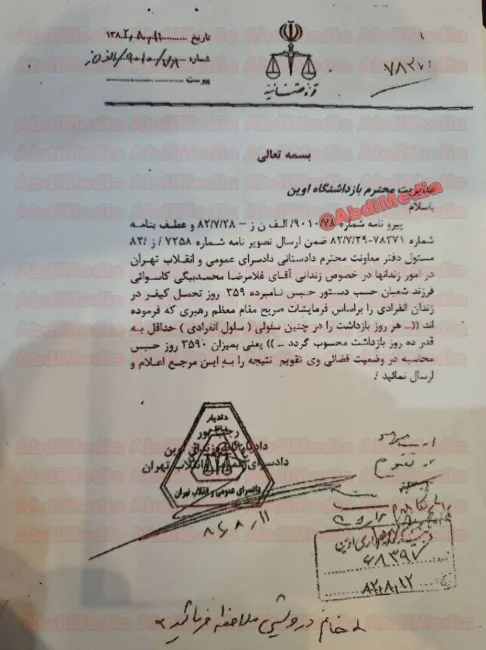 تاریخ
شماره
پیوست
قوه قضائیه
۷۸۳۷۰
بسمه تعالی
مدیریت محترم بازداشتگاه اوین
باسلام
پیرو نامه شماره ۹۰۱۰/۷۸/الف ن ز – ۸۲/۷/۲۸ و عطف بنامه
شماره ۷۸۳۷۱-۸۲/۷/۲۹ ضمن ارسال تصویر نامه شماره ۷۲۵۸ / ز /۸۲
مسئول دفتر معاونت محترم دادستانی دادسرای عمومی و انقلاب تهران
در امور زندانها در خصوص زندانی آقای غلامرضا محمدبیگی کاسوائی
فرزند شعبان حسب دستور حبس نامبرده ۳۵۹ روز تحمل کیفر در
زندان انفرادی را براساس فرمایشات صریح مقام معظم رهبری که فرموده
اند ((... هر روز بازداشت را در چنین سلولی ( سلول انفرادی ) حداقل به
قدر ده روز بازداشت محسوب گردد ... )) یعنی بمیزان ۳۵۹۰ روز حبس
محاسبه در وضعیت قضائی وی تقویم نتیجه را به این مرجع اعلام و
ارسال نمائید /.
@AbdiMedia
دادیار
دادسرای عمومی و انقلاب تهران
دادسرای عمومی و انقلاب تهران
۸۲/۸/۱۱
۶۸۳۹۷
۸۲,۸,۱۲
«خانم درویشی ملاحظه فرمائید»
AbdiMedia